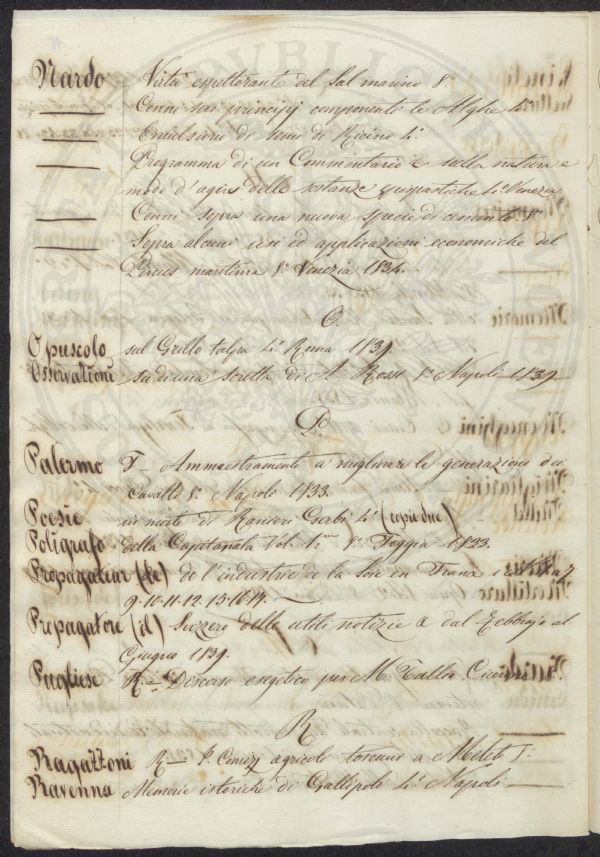 Nardo Virtù espettorante del Sal marino 8.°
— Cenni sui principj componenti le Alghe 4.°
— Emulsione di semi di Ricino 4.°
— Programma di un Commentario sulla natura e
modo d'agire delle sostanze 4.° Venezia
— Cenni sopra una nuova specie di cemento 8.°
— Sopra alcuni usi ed applicazioni economiche del
maritima 8.° Venezia 1834.
O.
Opuscolo sul Grillo talpa 4.° Roma 1839
Osservazioni su di una scritta di A. Rosse 8.° Napoli 1839
P.
Palermo F— Ammaestramenti a migliorare le generazioni dei
Cavalli 8.° Napoli 1833.
Poesie in morte di Ranieri 4.° (copie due)
Poligrafo della Capitanata Vol. 1.mo 8.° Foggia 1833.
Propagateur (le) de l'industrie de la Soie en France
9.10.11.12.15.16.17.
Propagatore (il) Svizzero delle utili notizie dal Febbrajo al
Giugno 1839.
Pugliese R— Discorso esegetico per M. Tullio Cicerone 8.°
R
Ragazzoni R— agricoli 8.°
Ravenna Memorie istoriche di Gallipoli 4.° Napoli